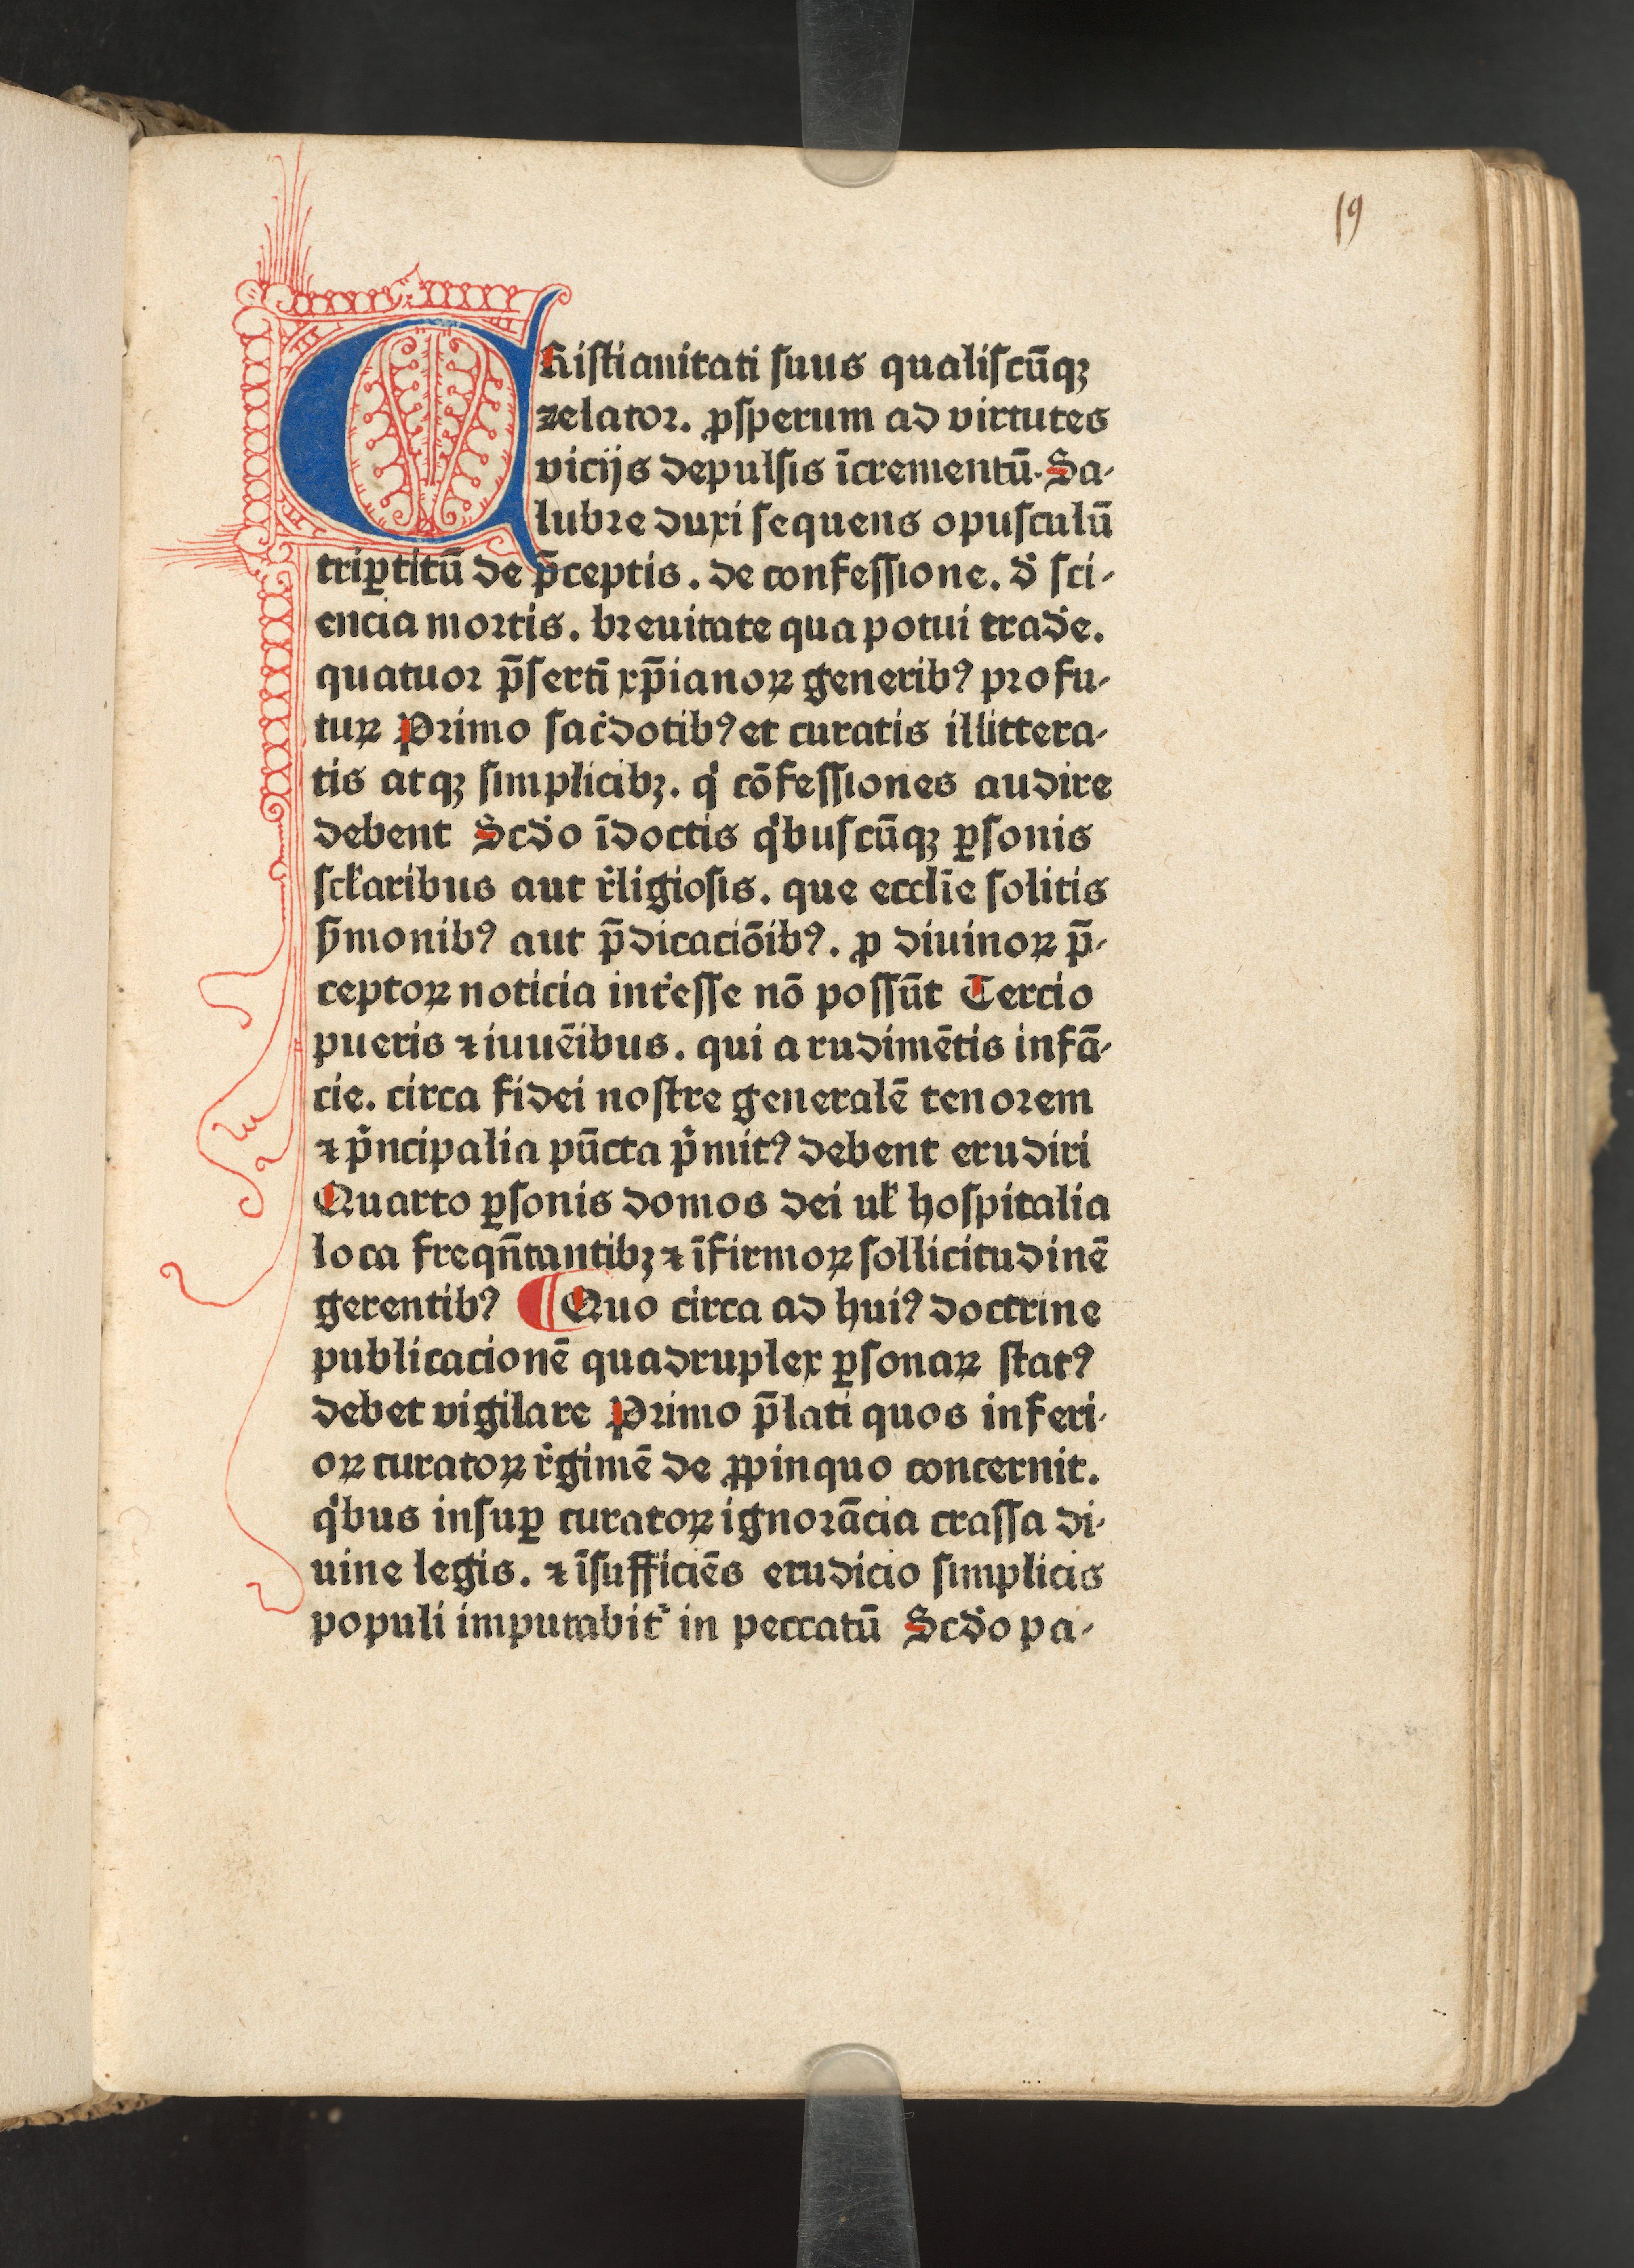 19
Cħistianitati suus qualiscūqꝫ
zelator. ꝓsperum ad virtutes
vicijs depulsis īcrementū. Sa-
lubre duxi sequens opusculū
triꝑtitū de p̄ceptis. de confessione. ď sci-
encia mortis. breuitate qua potui trade.
quatuor p̄sertī xp̄ianoꝝ generibꝰ profu-
tuꝝ Primo sac̓dotibꝰ et curatis illittera-
tis atqꝫ simplicibꝫ. qͥ cōfessiones audire
debent Scďo īdoctis qͥbuscūqꝫ ꝑsonis
scľaribus aut r̓ligiosis. que eccľie solitis
s̓monibꝰ aut p̄dicaciōibꝰ. ꝓ diuinoꝝ p̄-
ceptoꝝ noticia int̓esse nō possūt Tercio
pueris ⁊ iuuēibus. qui a rudimētis infā-
cie. circa fidei nostre generalē tenorem
⁊ pͥncipalia pūcta pͥmitꝰ debent erudiri
Quarto ꝑsonis domos dei uľ hospitalia
loca freqn̄tantibꝫ ⁊ īfirmoꝝ sollicitudinē
gerentibꝰ ¶ Quo circa ad huiꝰ doctrine
publicacionē quadruplex ꝑsonaꝝ statꝰ
debet vigilare Primo p̄lati quos inferi-
oꝝ curatoꝝ r̓gimē de ꝓpinquo concernit.
qͥbus insuꝑ curatoꝝ ignorācia crassa di-
uine legis. ⁊ īsufficiēs erudicio simplicis
populi imputabit᷑ in peccatū Scďo pa-